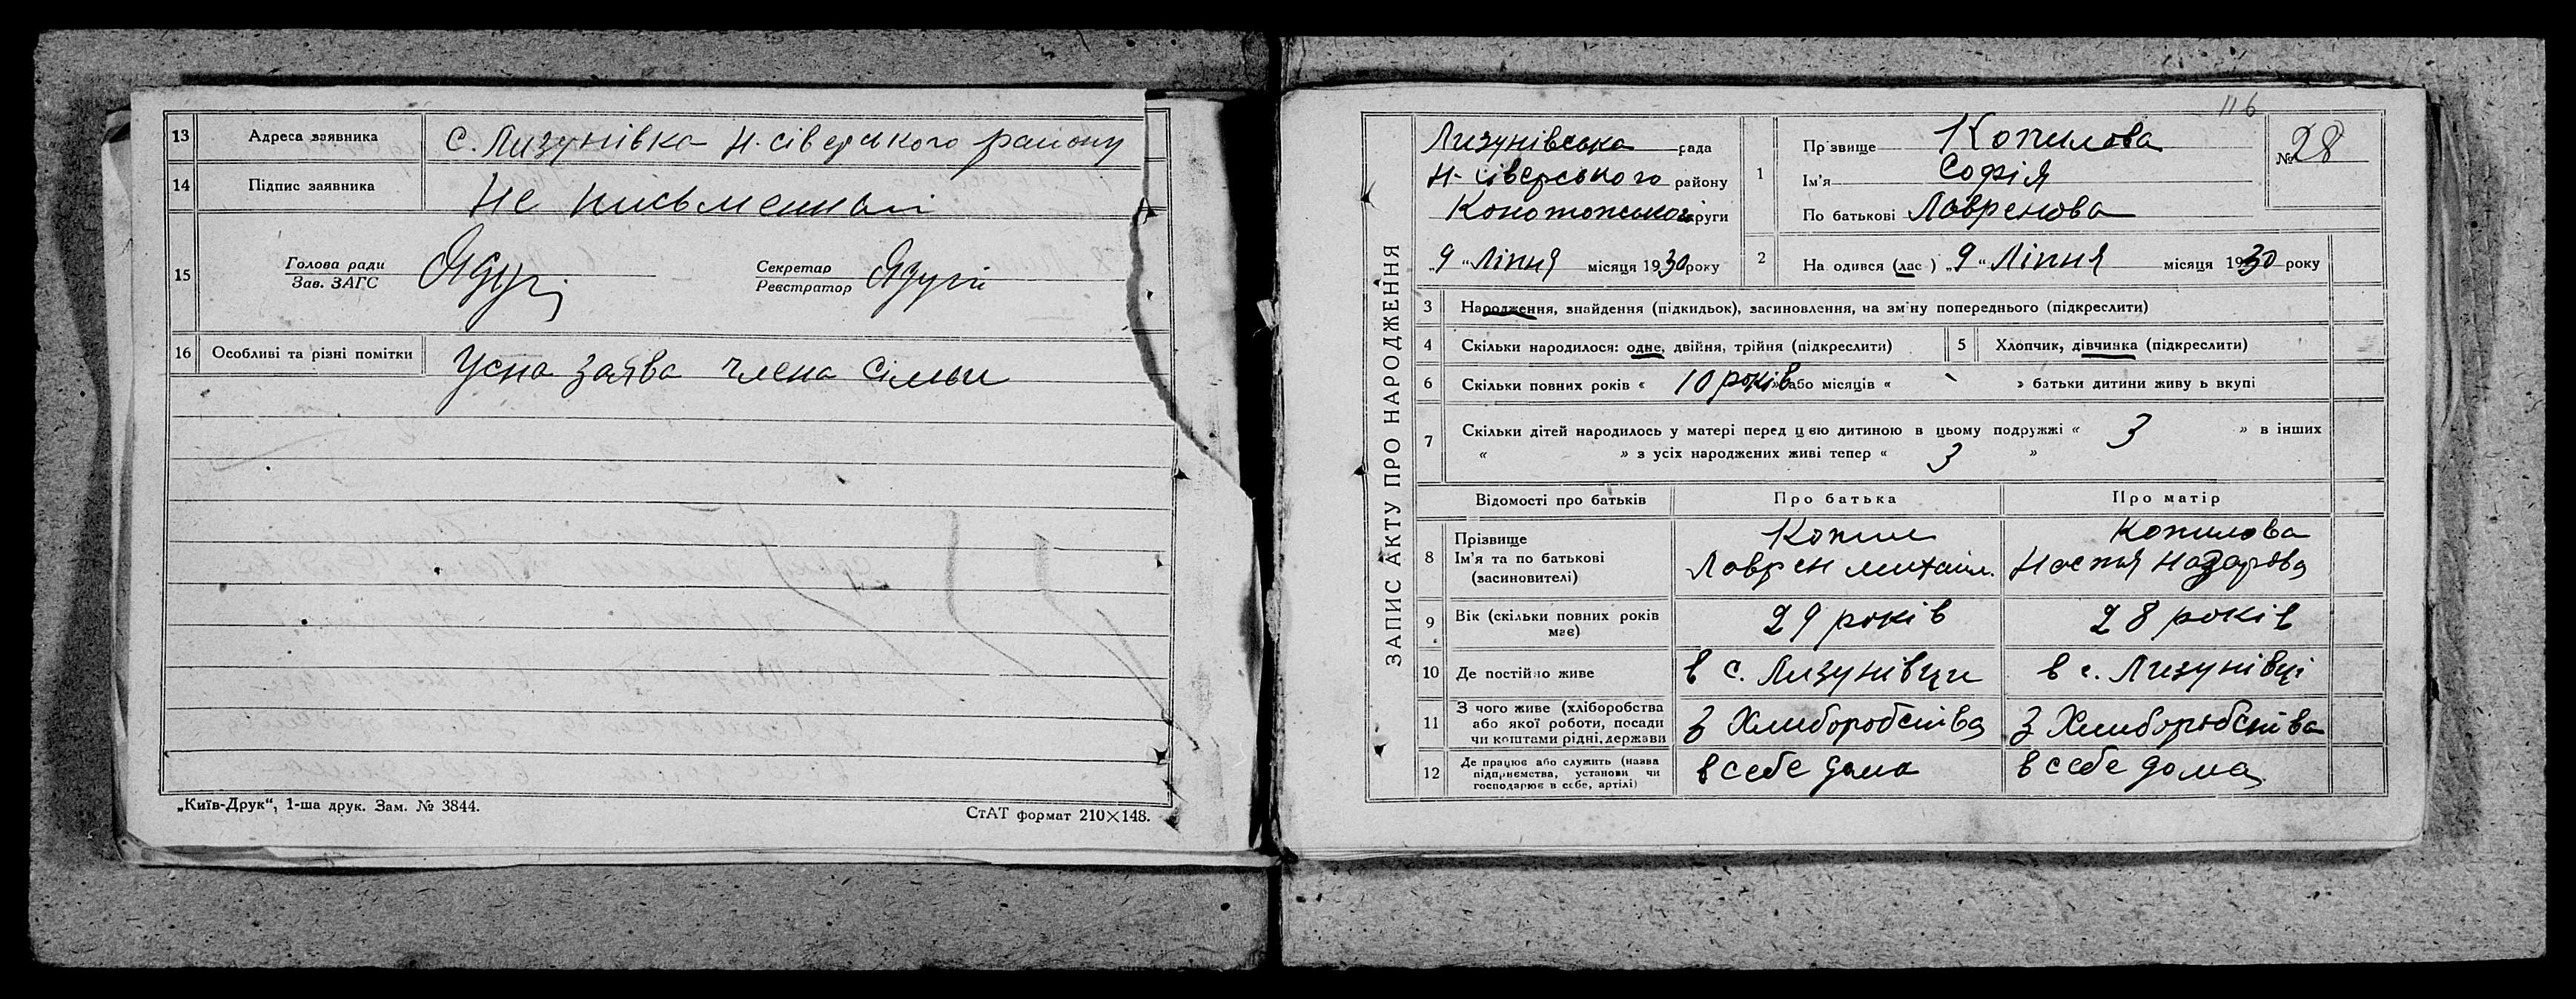 13 Адреса заявника С. Лизунівка Н. сіверського району
14 Підпис заявника Не письменний
15 Голова ради
Зав. ЗАГС
Секретар
Реєстратор
16 Особливі та різні помітки Усна заява члена сімьи
„Київ-Друк“, 1-ша друк. Зам. № 3844.
СтАТ формат 210×148.
116
ЗАПИС АКТУ ПРО НАРОДЖЕННЯ
Лизунівська рада
Н-сіверського району
Конотопської округи
„9“ Ліпня місяця 1930 року
1 Прізвище Копилова
Ім'я Софія
По батькові Лавренова
№ 28
2 На одився (лас ) „9“ Ліпня місяця 1930 року
3 Народження, знайдення (підкидьок), засиновлення, на зміну попереднього (підкреслити)
4 Скільки народилося: одне, двійня, трійня (підкреслити)
5 Хлопчик, дівчинка (підкреслити)
6 Скільки повних років « 10 років » або місяців « - » батьки дитини живуть вкупі
7 Скільки дітей народилось у матері перед цією дитиною в цьому подружжі « 3 » в інших
« » з усіх народжених живі тепер « 3 »
Відомості про батьків Про батька Про матір
8 Прізвище Копил Копилова
Ім'я та по батькові Лаврен михаил. Настя Назарова
(засновителі)
9 Вік (скільки повних років має) 29 років 28 років
10 Де постійно живе в с. Лизунівци в с. Лизунівці
11 З чого живе (хліборобства
або якої роботи, посади
чи коштами рідні, держави З Хлиборобства З Хлиборобства
12 Де працює або служить (назва
підприємства, установи чи
господарює в себе, артілі) в себе дома в себе дома